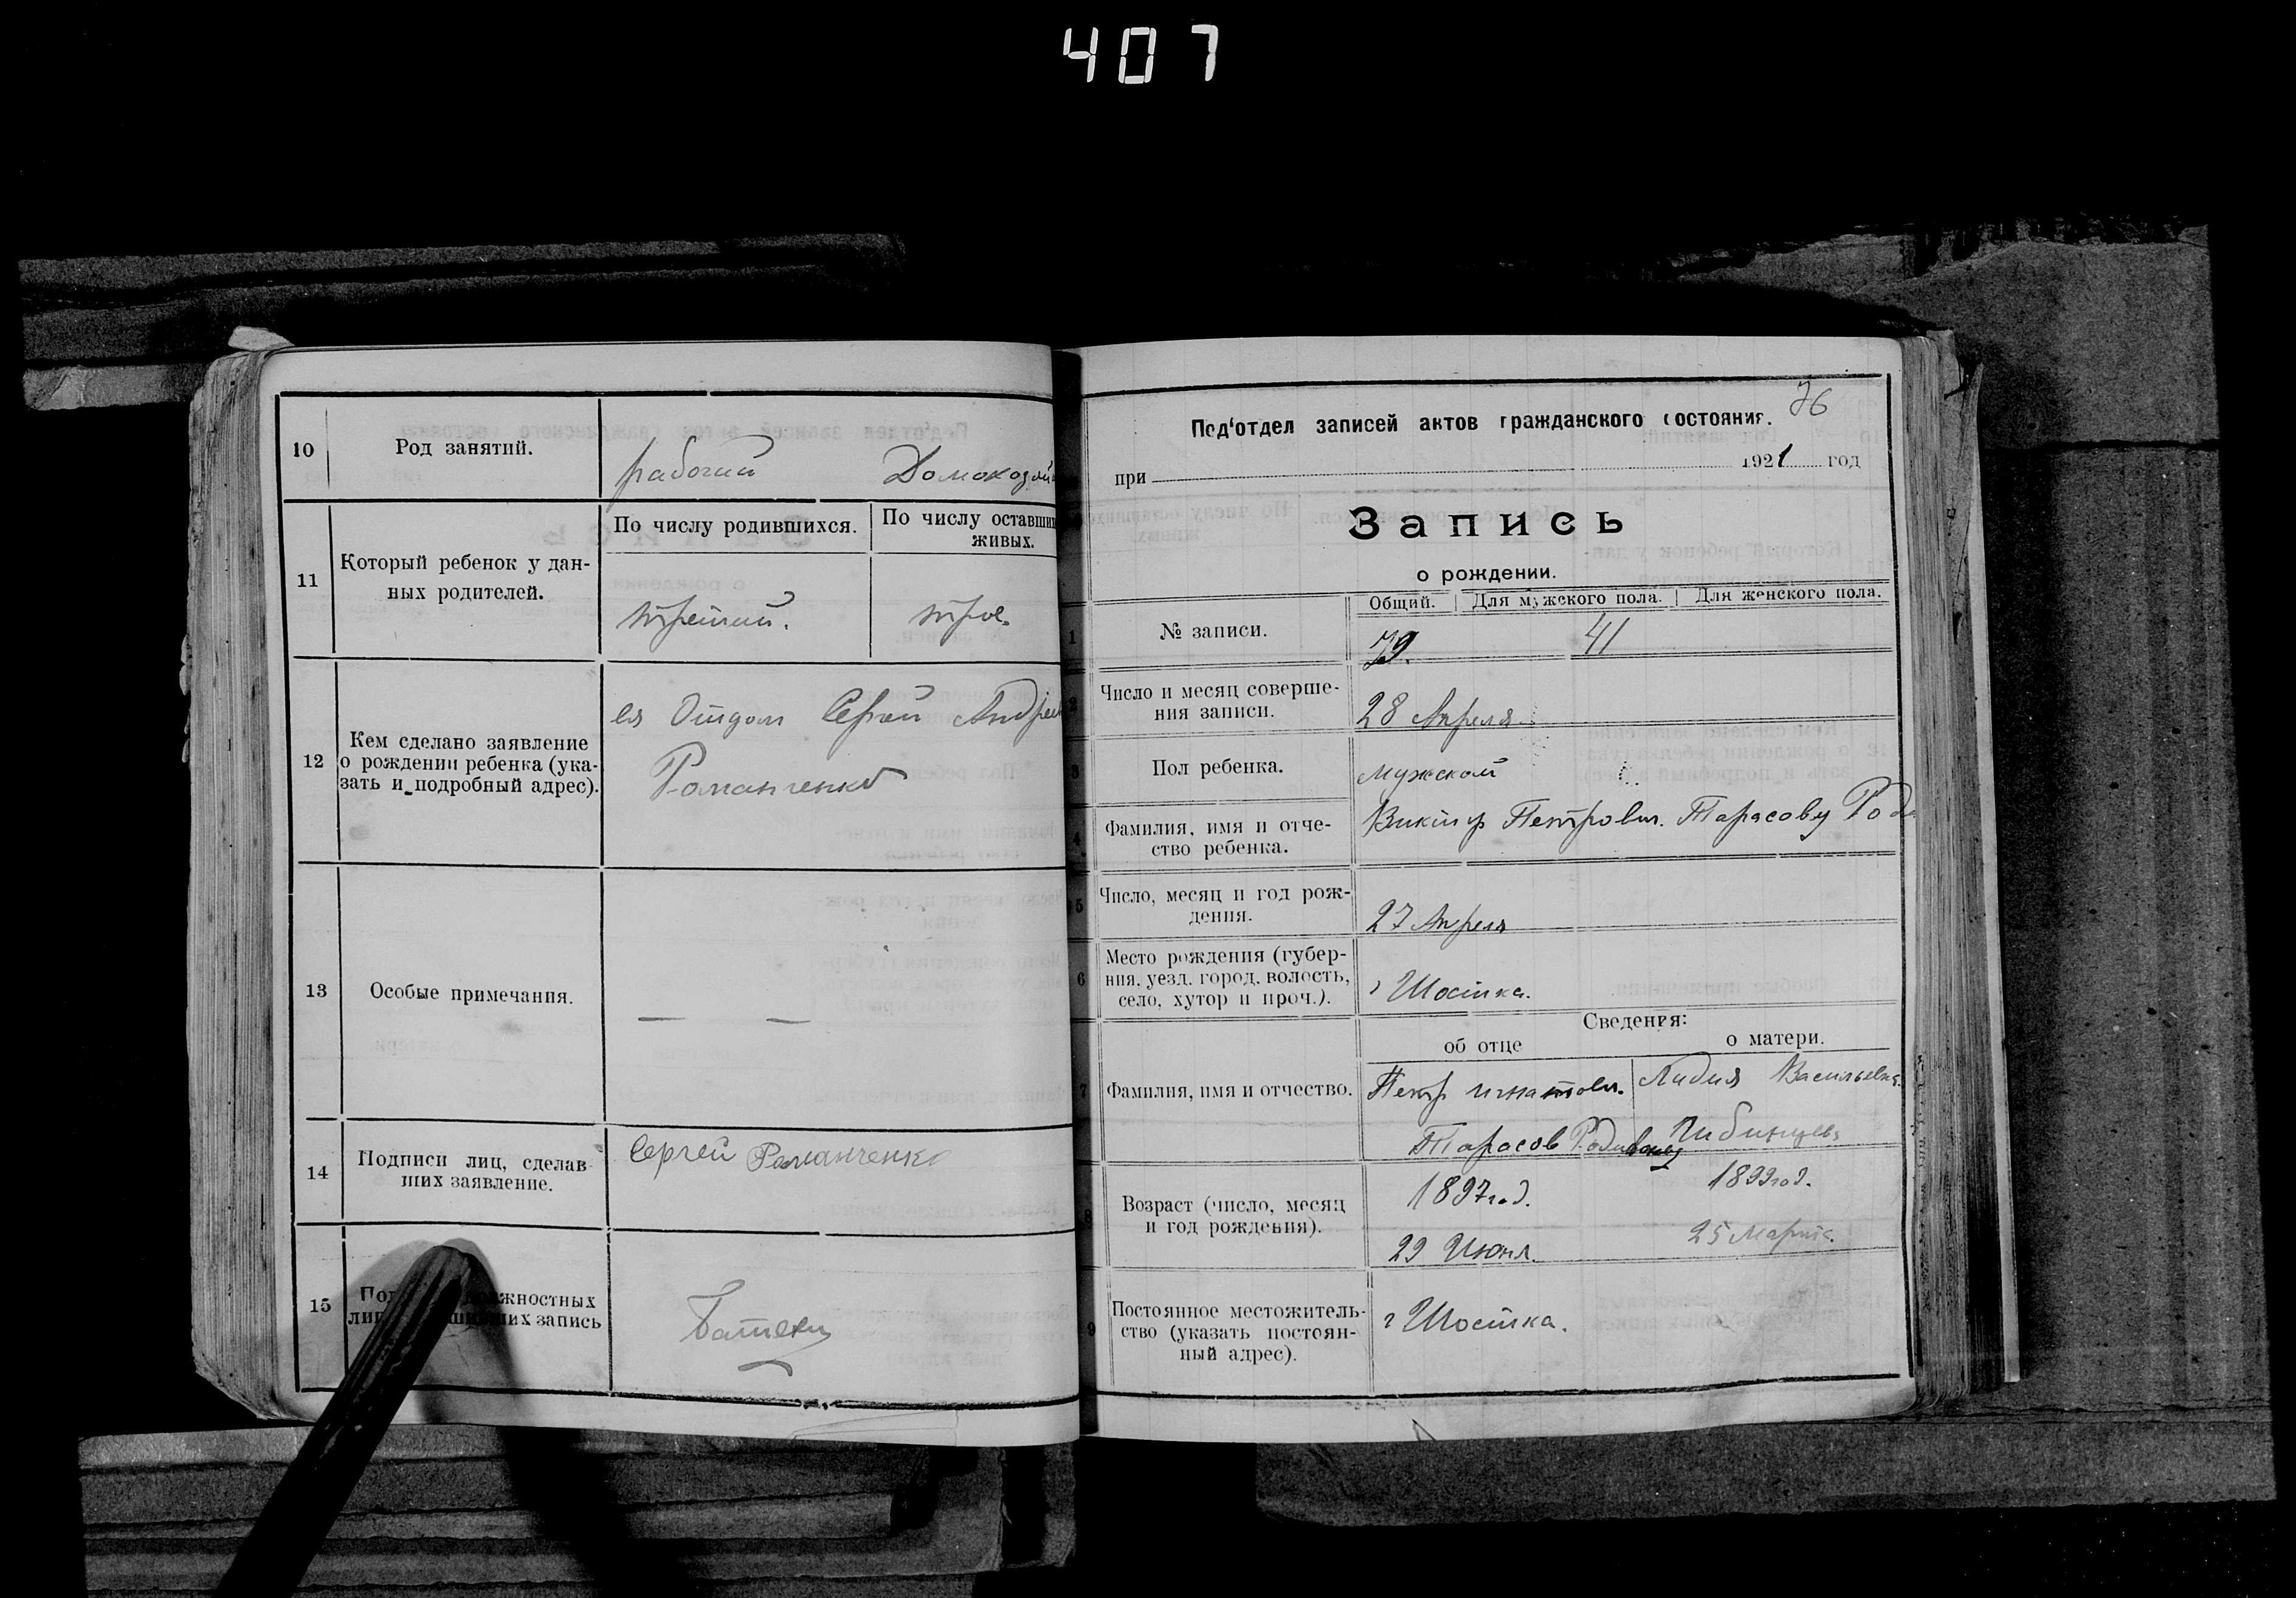 407
10
Род занятий.
рабочий Домохозяй
11
Который ребенок у дан-
ных родителей.
По числу родившихся.
По числу оставши
живых.
третий.
трое.
12
Кем сделано заявление
о рождении ребенка (ука-
зать и подробный адрес).
ея Отцом Сергей Андрее
Романченко
13
Особые примечания.
— —
14
Подписи лиц, сделав
ших заявление.
Сергей Романченко
15
жностных
их запись
76
Под‘отдел записей актов гражданского состояния.
при 1921 год
Запись
о рождении.
1
№ записи.
Общий. Для мужского пола. Для женского пола.
79. 41
2
Число и месяц соверше-
ния записи.
28 Апреля
3
Пол ребенка.
мужской
4
Фамилия, имя и отче-
ство ребенка.
Виктор Петрович. Тарасову Род
5
Число, месяц и год рож-
дения.
27 Апреля
6
Место рождения (губер-
ния, уезд, город, волость,
село, хутор и проч.).
г Шостка.
Сведения:
об отце о матери.
7
Фамилия, имя и отчество.
Петр Игнатов. Лидия Васильевна
Тарасов
8
Возраст (число, месяц
и год рождения).
1897 год. 1899 год.
29 Июня. 25 Марта.
9
Постоянное местожитель-
ство (указать постоян-
ный адрес).
г Шостка.